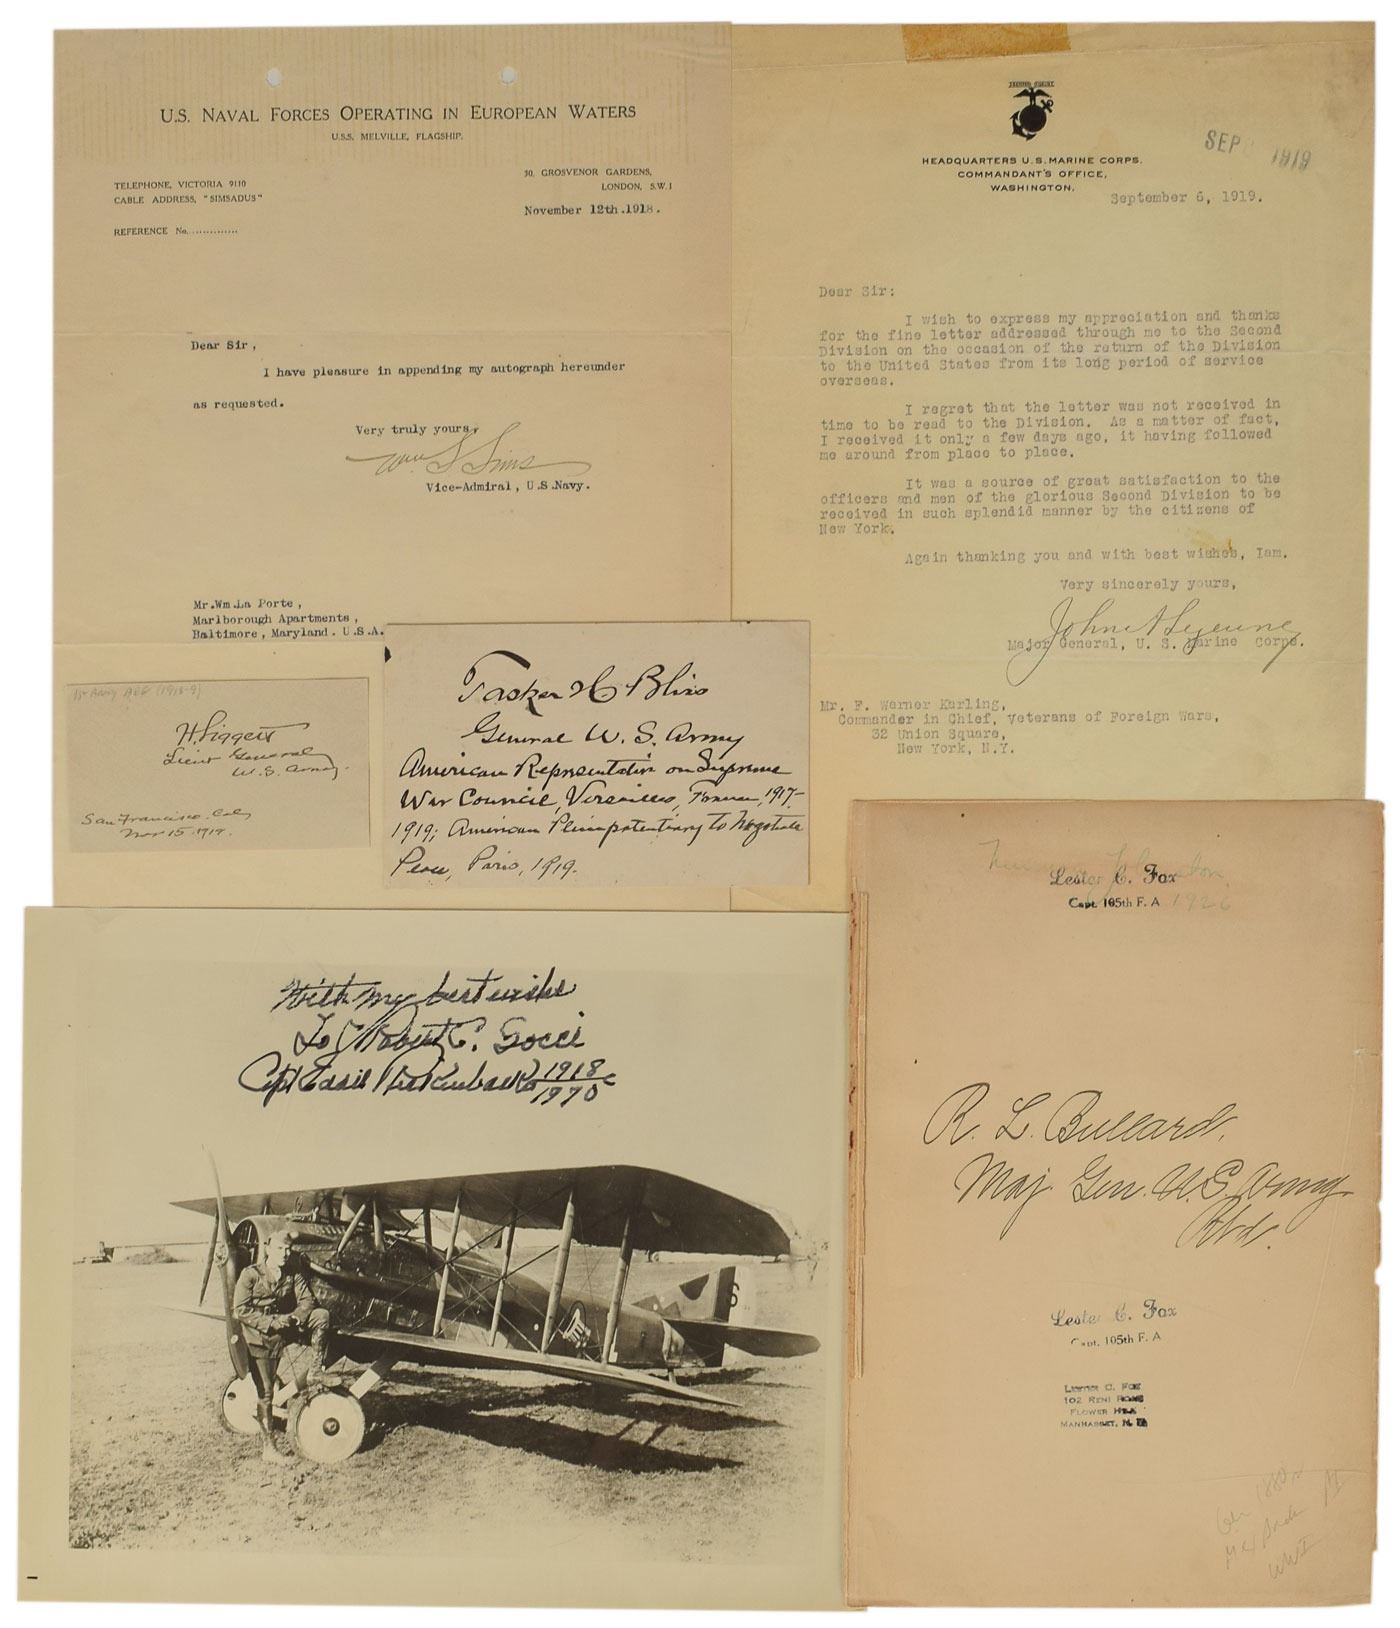 U.S. NAVAL FORCES OPERATING IN EUROPEAN WATERS
U.S.S. MELVILLE, FLAGSHIP.
TELEPHONE, VICTORIA 9110
CABLE ADDRESS, "SIMSADUS"
REFERENCE No..............
30, GROSVENOR GARDENS,
LONDON, S.W.1
November 12th.1918.
Dear Sir,
I have pleasure in appending my autograph hereunder
as requested.
Very truly yours,
Wm S Sims
Vice-Admiral, U.S.Navy.
Mr.Wm.La Porte,
Marlborough Apartments,
Baltimore, Maryland. U.S.A.
HEADQUARTERS U.S. MARINE CORPS.
COMMANDANT'S OFFICE,
WASHINGTON,
SEP 1919
September 6, 1919.
Dear Sir:
I wish to express my appreciation and thanks
for the fine letter addressed through me to the Second
Division on the occasion of the return of the Division
to the United States from its long period of service
overseas.
I regret that the letter was not received in
time to be read to the Division. As a matter of fact,
I received it only a few days ago, it having followed
me around from place to place.
It was a source of great satisfaction to the
officers and men of the glorious Second Division to be
received in such splendid manner by the citizens of
New York.
Again thanking you and with best wishes, Iam.
Very sincerely yours,
John A Lejeune
Major General, U. S. Marine Corps.
Mr. F. Warner Karling,
Commander in Chief, Veterans of Foreign Wars,
32 Union Square,
New York, N.Y.
1st Army AEF (1918-9)
H Liggett
Lieut General
U.S. Army.
San Francisco. Cal,
Nov 15. 1919.
Tasker H Bliss
General U. S. Army
American Representative on Supreme
War Council, Versailles, France, 1917-
1919; American Plenipotentiary to Negotiate
Peace, Paris, 1919.
With my best wishes
To Robert C. Gocci
Capt Eddie Rickenbacker 1918
1970
Lester C. Fox
Capt. 105th F. A
1926
R. L. Bullard,
Maj. Gen. U.S. Army
Rtd.
Lester C. Fox
Capt. 105th F. A
LESTER C. FOX
102 RENI ROAD
FLOWER HILL
MANHASSET, N. Y.
WWI